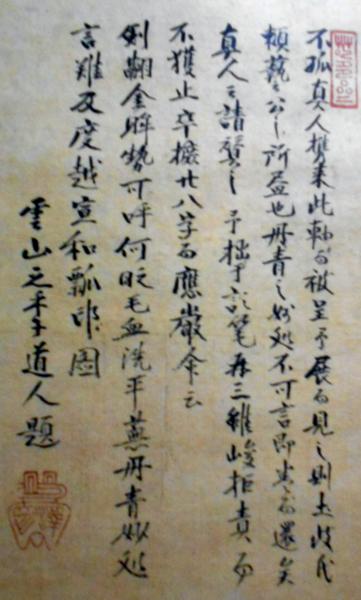 不孤真人携來此軸而被呈予展而見之則土岐氏
頼藝公之所画也丹青之妙処不可言即巻而還矣
真人之請賛之予拙于詩筆再三雖峻拒責而
不獲止卒撥廿八字而應嚴命云
剣翮金眸勢可呼何時毛血洒平蕪丹青妙処
言難及度越宣和瓢印圖
雲山之 道人題